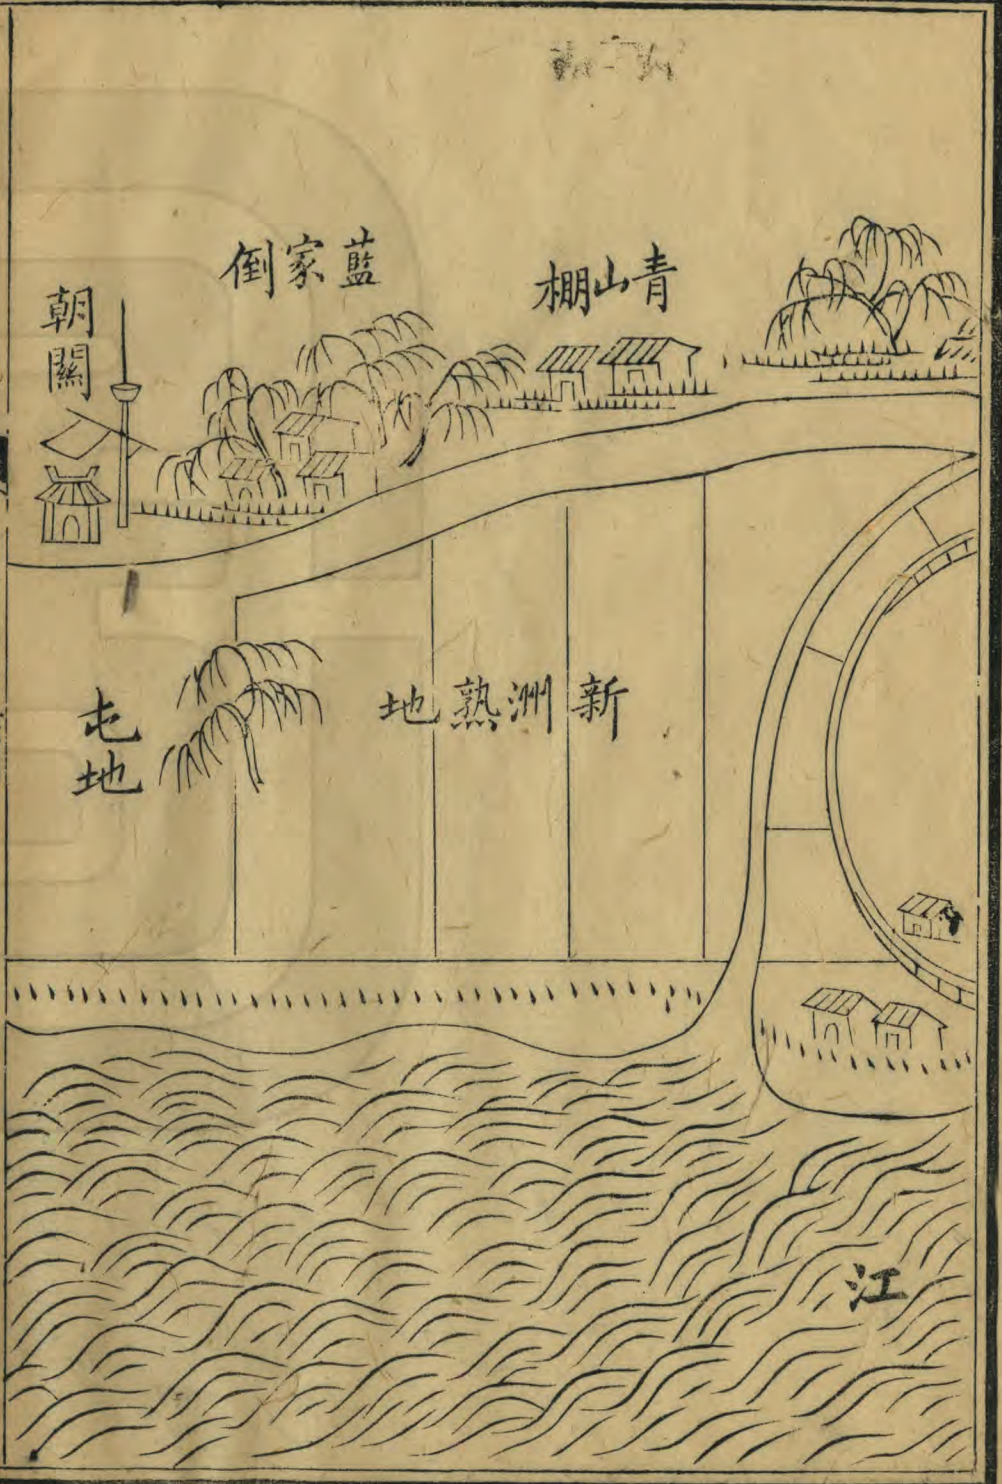 青山棚
藍家倒
朝關
新洲熟地
屯地
江